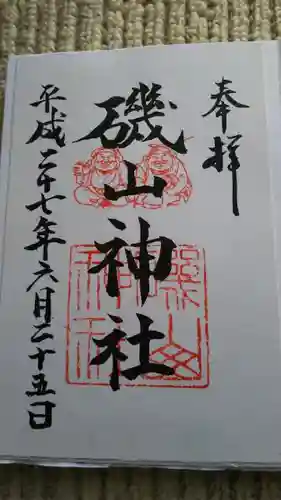 奉拝
磯山神社
平成二十七年六月二十五日